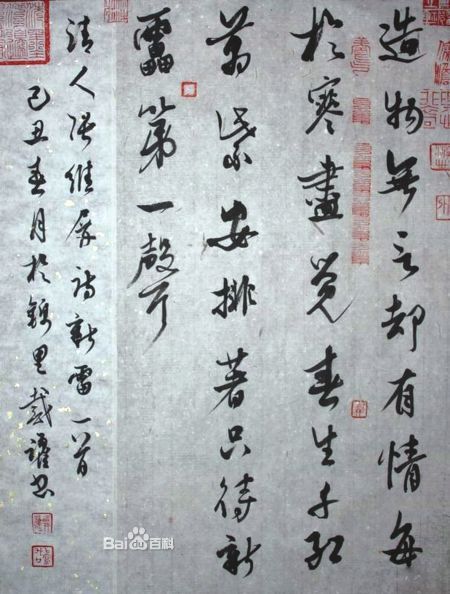 造物無言却有情每
於寒盡覺春生千紅
萬紫安排著只待新
雷第一聲
清人張維屏詩新雷一首
己丑春月於錦里戴書
Bai du 百科